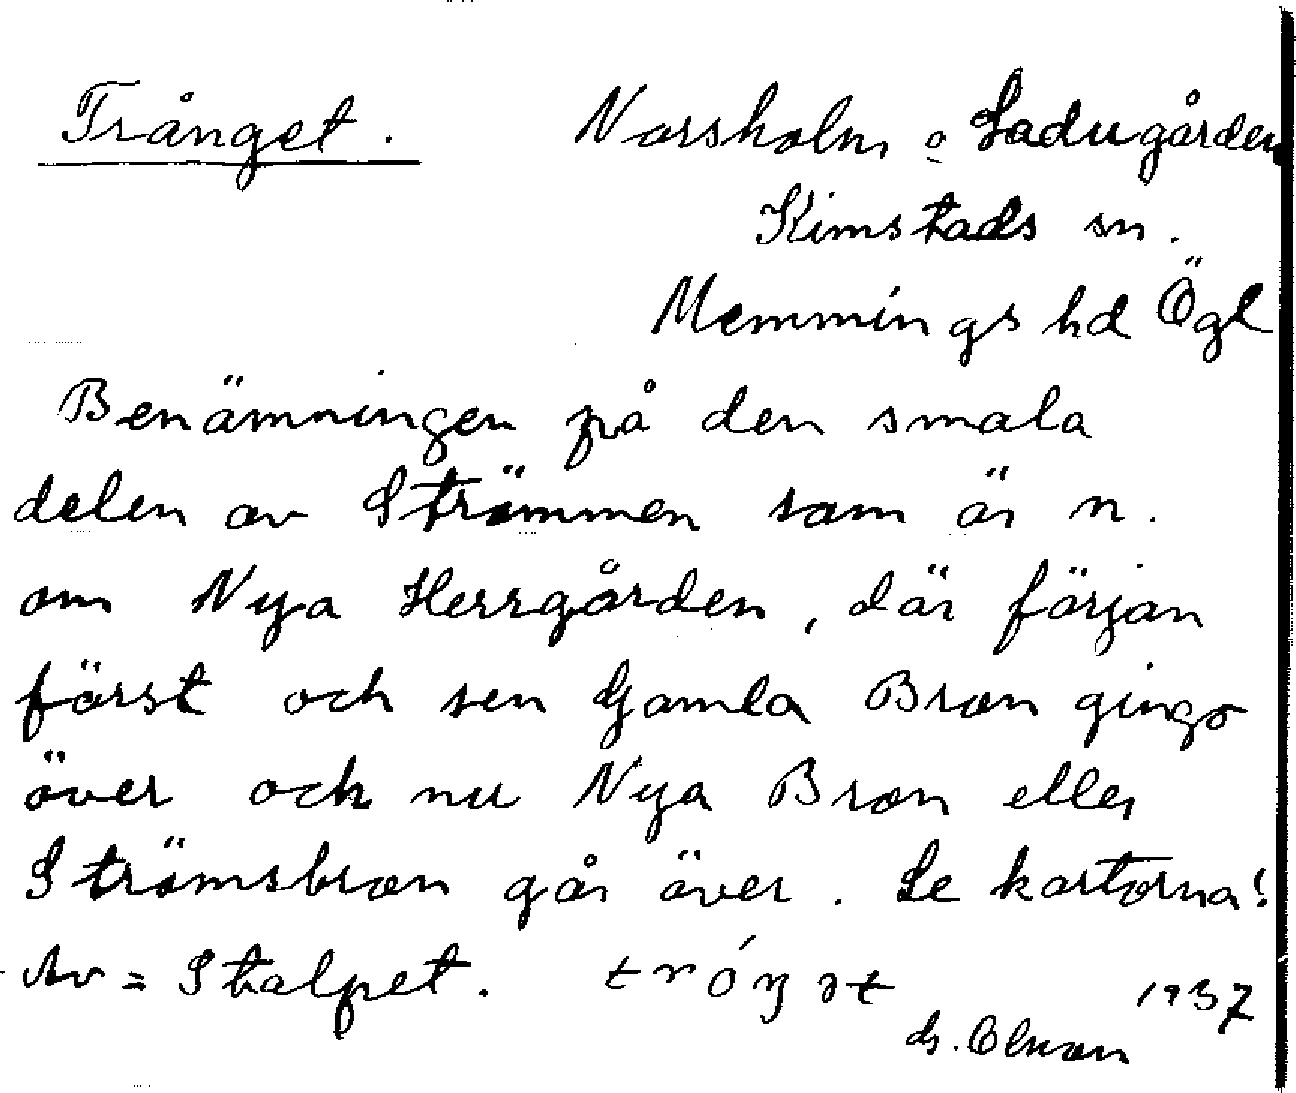 Trånget. Norsholm o Ladugården
Kimstads sn.
Memmings hd Ögl
Benämningen på den smala
delen av Strömmen som är n.
om Nya Herrgården, där färjan
först och sen Gamla Bron gingo
över och nu Nya Bron eller
Strömsbron går över. Se kartorna!
Av = Stalpet. 1937